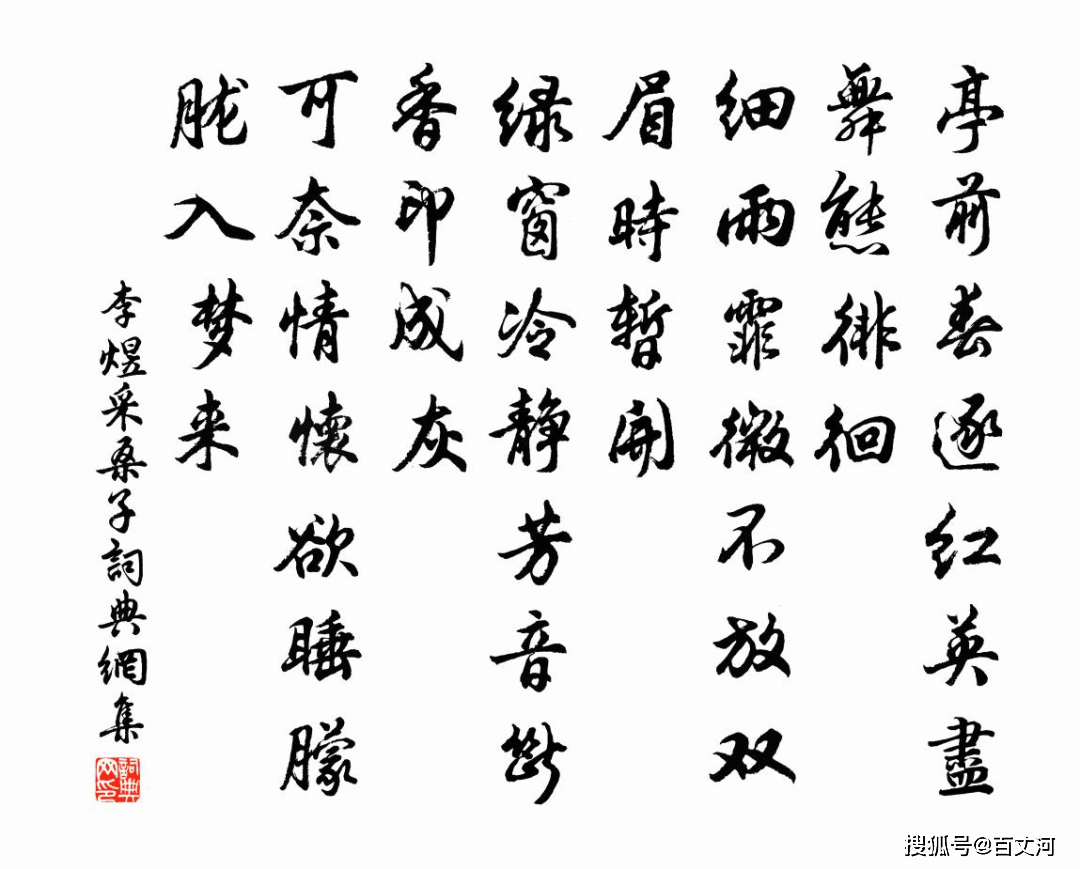 亭前春逐红英盡
舞態徘徊
细雨霏微不放双
眉時暫開
绿窗冷静芳音斷
香印成灰
可奈情懷欲睡朦
胧入梦来
李煜采桑子詞典網集
詞典网印
搜狐号@百丈河